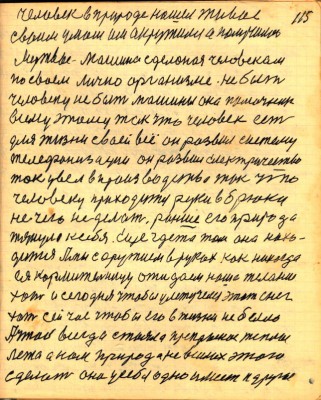 115
человек в природе нашел живое
своим умом им окружили а получили
Мертвое. Машина сделоная человекам
по своем личью организме. не быть
человеку не быть машины она
всему этому так что человек сет
для жизни своей всё он развил систему
телефонизацию он развил електричество
ток увел в производство так что
человеку приходится руки в брюки
не чего неделат. раньше его природа
тянула к себе. Еще где то там она нахо-
дется Лжи с оружием в руках как никогда
ея кормителницу ожидаем наше желание
хот и сегодня чтобы улетучени этот снег
хот сей час чтобы его в жизни не было
А тов всегда стояла прекрасное теплое
Лета а нам природа не в силах этого
сделать она у себя одно имеет и другое